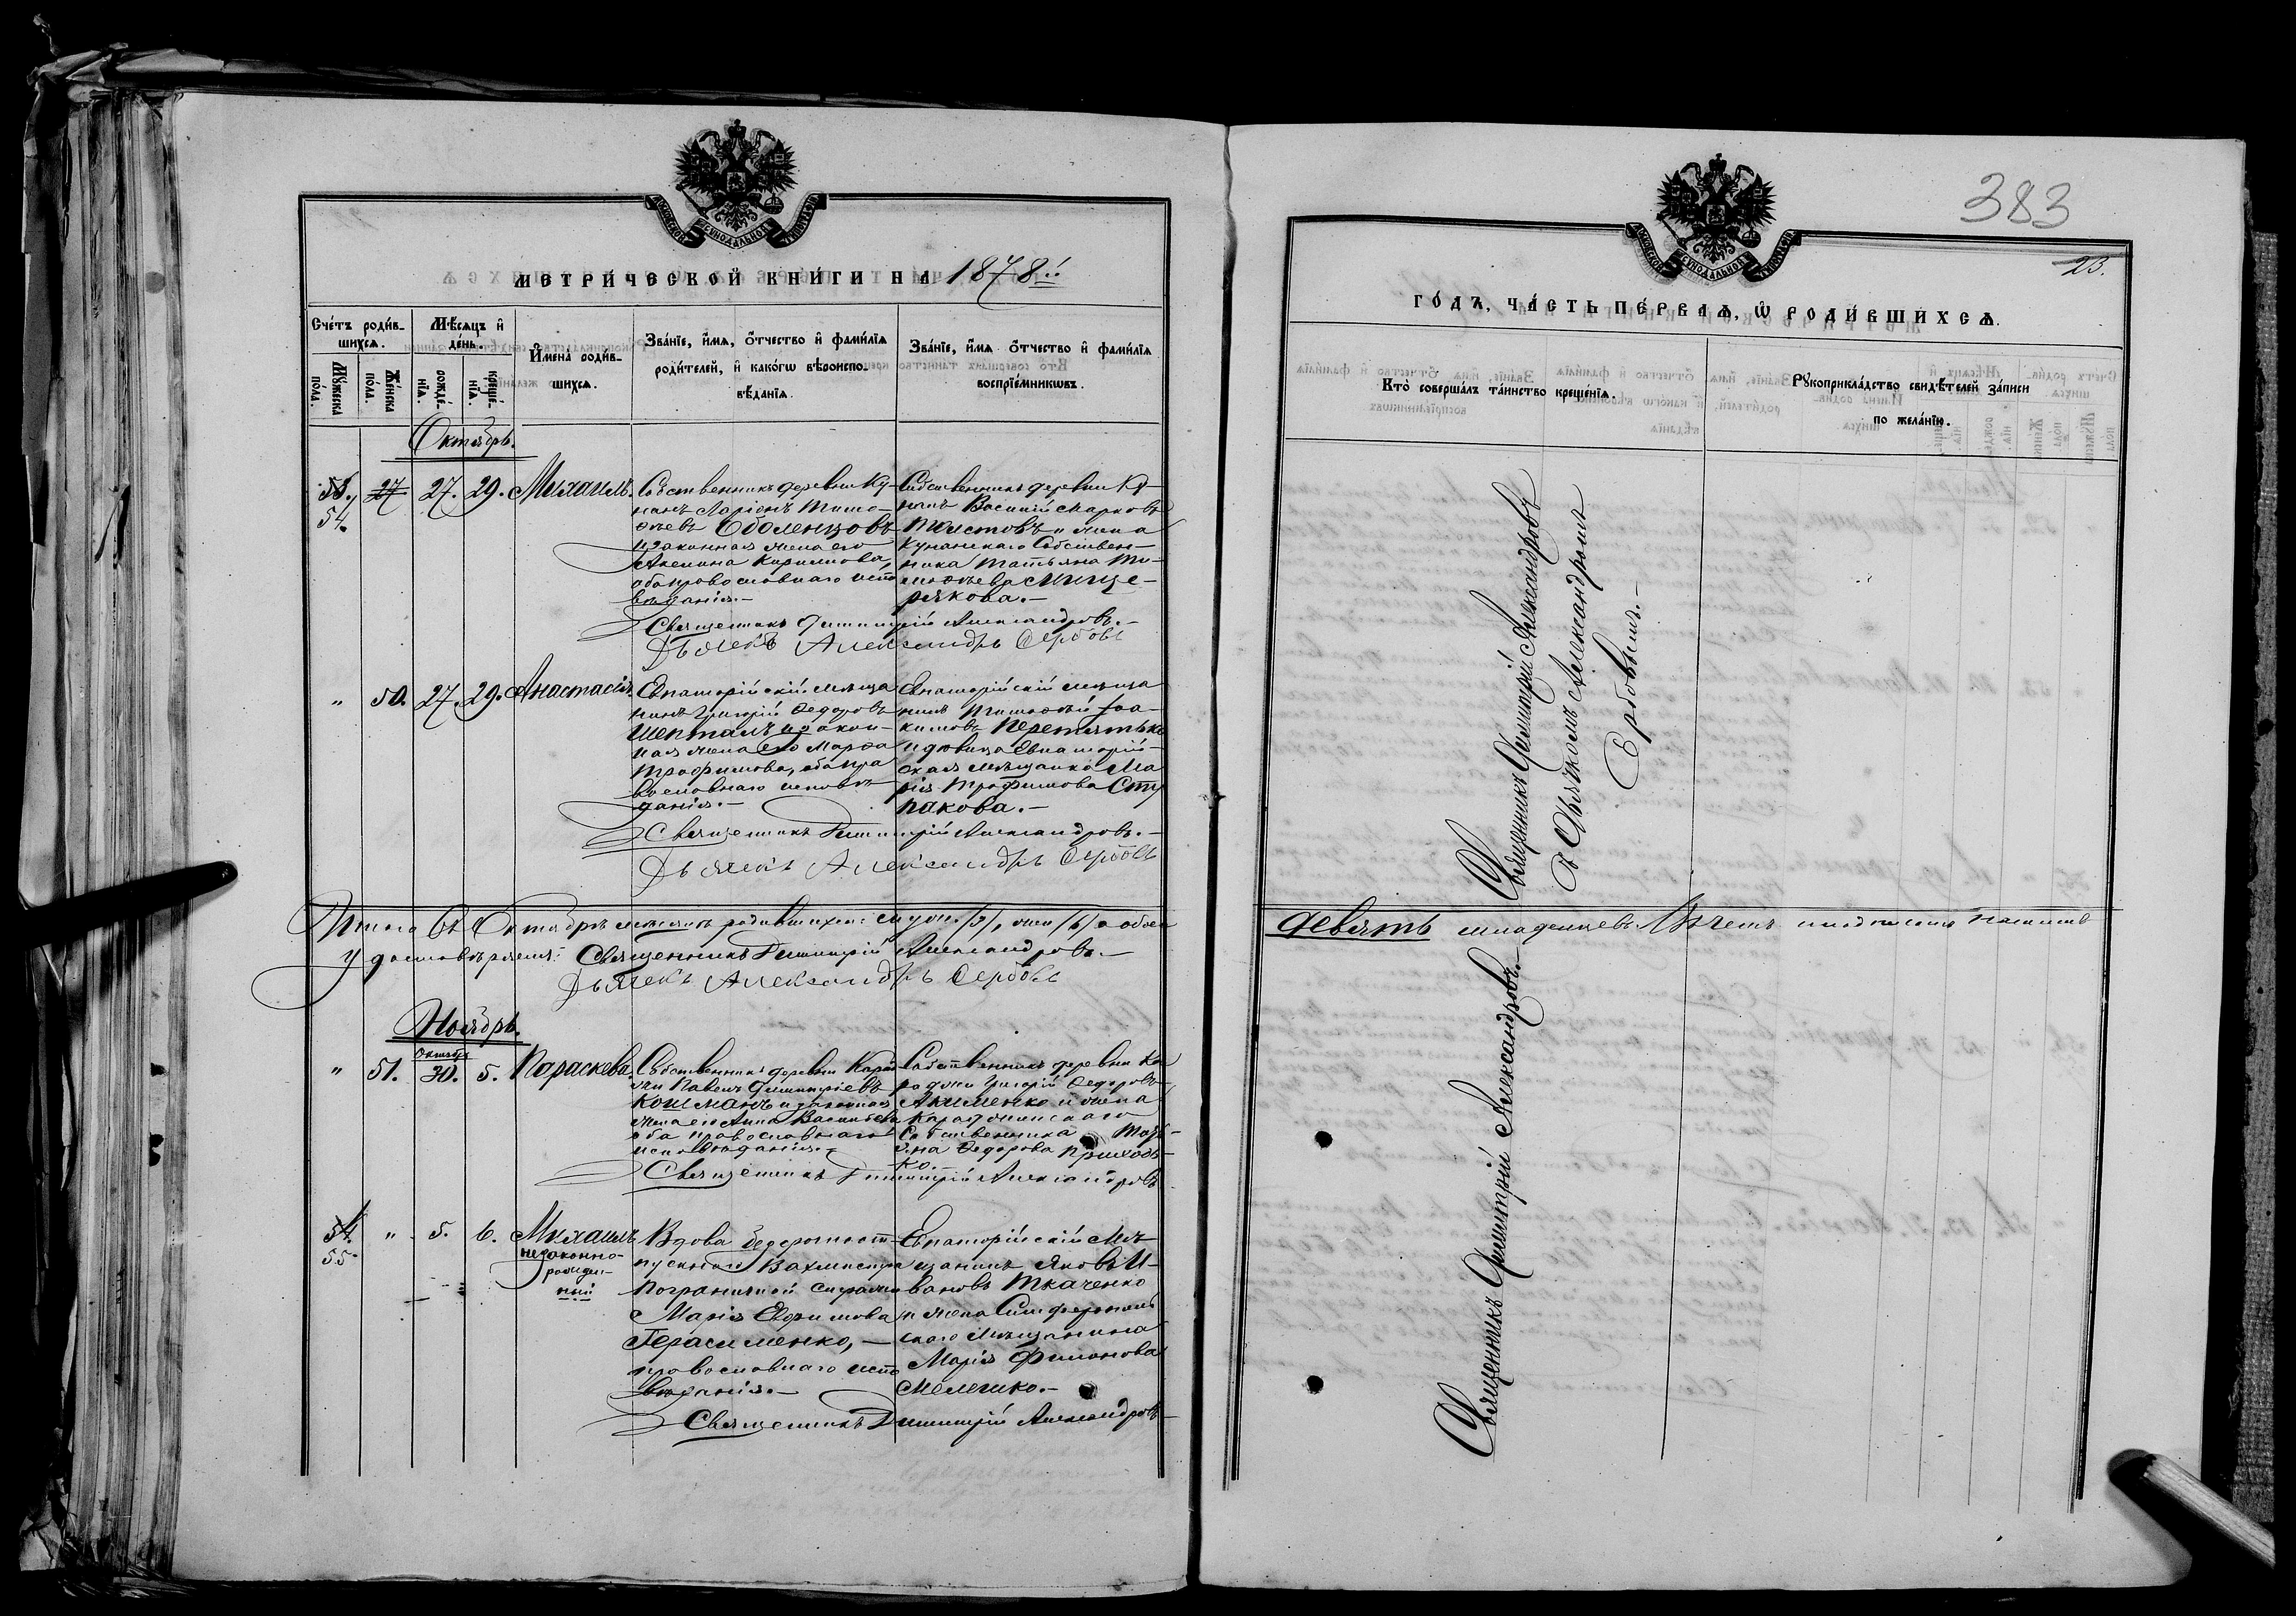 МОСКОВСКОЙ СѴНОДАЛЬНОЙ ТИПОГРАФІИ
МЕТРИ́ЧЕСКОЙ КНИ́ГИ НА 1878й
Сче́тъ роди́в-
шихсѧ.
Мꙋ́жеска
по́ла.
Же́нска
по́ла.
Мѣ́сѧцъ и҆
де́нь.
рожде́-
нїѧ.
креще́-
нїѧ.
И҆мена̀ роди́в-
шихсѧ.
Зва́нїе, и҆́мѧ, ѻ҆́тчество и҆ фами́лїѧ
роди́телей, и҆ како́гѡ вѣроиспо-
вѣ́данїѧ.
Зва́нїе, и҆́мѧ ѻ҆́тчество и҆ фами́лїѧ
воспрїе́мникѡвъ.
Октябрь.
53.
54.
27
27.
29.
Михаилъ.
Собственникъ деревни Ку-
нанъ Ларіонъ Тимо-
ѳеевъ Оболенцовъ
и законная жена его
Акилина Кириллова,
оба православнаго испо
вѣданія.-
Собственникъ деревни Ку-
нанъ Василій Марковъ
Толстовъ и жена
Кунанскаго Собствен-
ника Татьяна Ти-
моѳеева Мище-
рякова.-
Священникъ Димитрій Александровъ.-
Дьячекъ Александръ Сербовъ
"
50.
27.
29.
Анастасія.
Евпаторійскій мѣща
нинъ Григорій Ѳедоровъ
Шепталъ и закон-
ная жена его Марѳа
Трофимова, оба пра
вославнаго исповѣ
данія.-
Евпаторійскій мѣща
нинъ Тимоѳей Іоа-
кимовъ Перетятько
и дѣвица Евпаторій-
ская мѣщанка Ма
рія Трофимова Сту
пакова.-
Священникъ Димитрій Александровъ.-
Дьячекъ Александръ Сербовъ
Итого въ Октябрѣ мѣсяцѣ родившихся: муж. /3/, жен /6/ а обоего
удостовѣряемъ: Священникъ Димитрій Александровъ.-
Дьячекъ Александръ Сербовъ
Ноябрь.
"
51.
Октября
30.
5.
Параскева.
Собственникъ деревни Карад
жи Павелъ Димитріевъ
Кошманъ и законная
жена его Анна Васильева
оба православнаго
исповѣданія.-
Собственникъ деревни Ка
раджи Григорій Ѳедоровъ
Акименко и жена
Караджинскаго
Собственника Тать-
яна Ѳедорова Приходь-
ко.-
Священникъ Димитрій Александровъ
54.
55.
"
5.
6.
Михаилъ
незаконно-
рожден-
ный
Вдова безсрочноот-
пускнаго Вахмистра
пограничной стражи
Марія Ефимова
Герасименко,-
православнаго испо
вѣданія.-
Евпаторійскій мѣ-
щанинъ Яковъ И-
вановъ Ткаченко
и жена Симферополь
скаго мѣщанина
Марія Филонова
Мелешко.-
Священникъ Димитрій Александровъ-
383
23.
МОСКОВСКОЙ СѴНОДАЛЬНОЙ ТИПОГРАФІИ
ГО́ДЪ, ЧА́СТЬ ПЕ́РВАѦ, Ѡ҆ РОДИ́ВШИХСѦ.
Кто̀ соверша́лъ та́инство креще́нїѧ.
Рꙋкоприкла́дство свидѣ́телей за́писи
по жела́нїю.
Священникъ Димитрій Александровъ
съ Дьячкомъ Александромъ
Сербовымъ.-
девять младенцевъ. Въ чемъ и подписомъ нашимъ
Священникъ Димитрій Александровъ.-